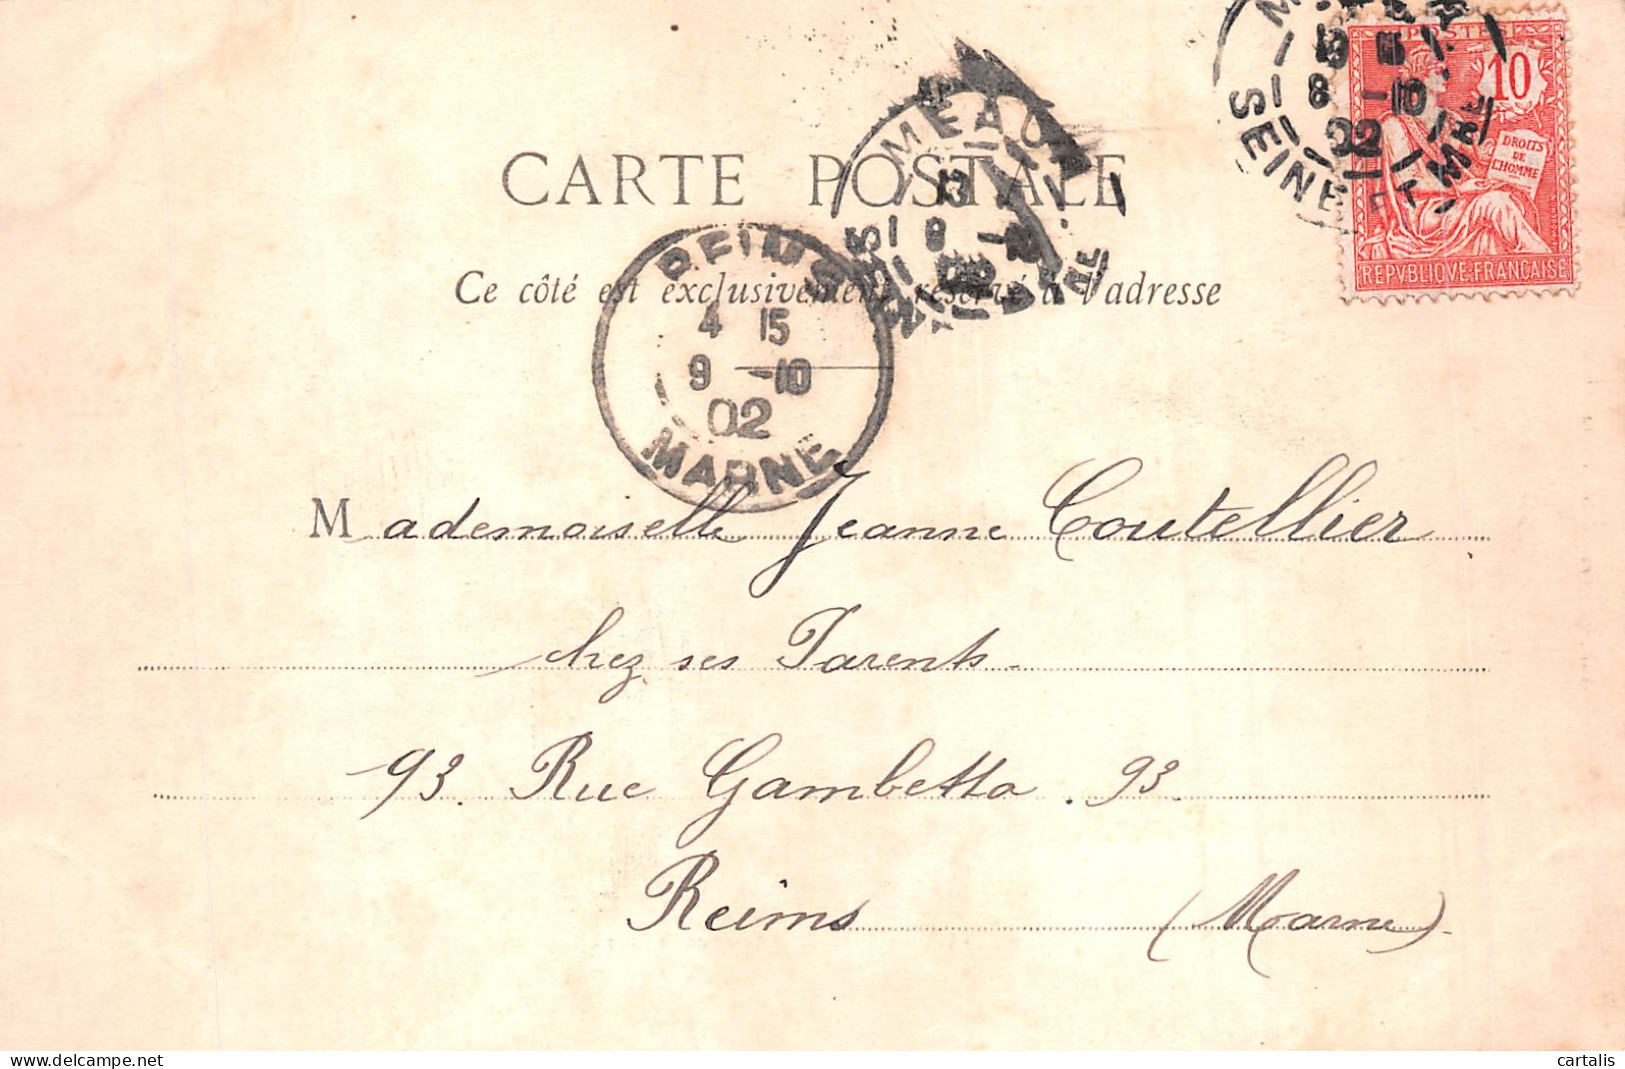 POSTES
10
DROITS
DE
L'HOMME
REPVBLIQVE·FRANÇAISE
8 - 10
02
SEINE ET MNE
MEAUX
CARTE POSTALE
Ce côté est exclusivement réservé à l'adresse
REIMS
4 15
9 - 10
02
MARNE
Mademoiselle Jeanne Coutellier
chez ses Parents
93. Rue Gambetta . 93.
Reims (Marne).
cartalis